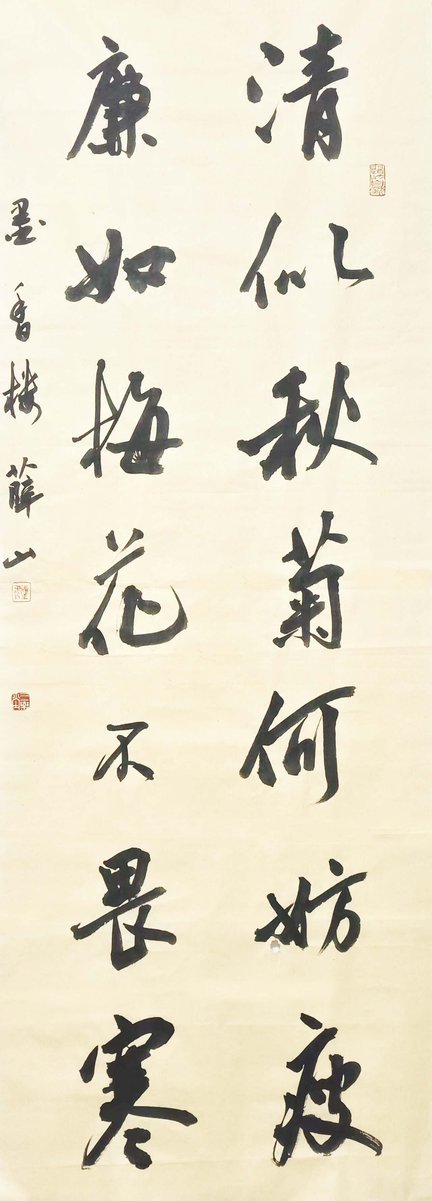 清似秋菊何妨瘦
廉如梅花不畏寒
墨香楼薛山